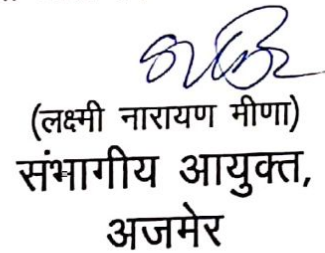 (लक्ष्मी नारायण मीणा)
संभागीय आयुक्त,
अजमेर